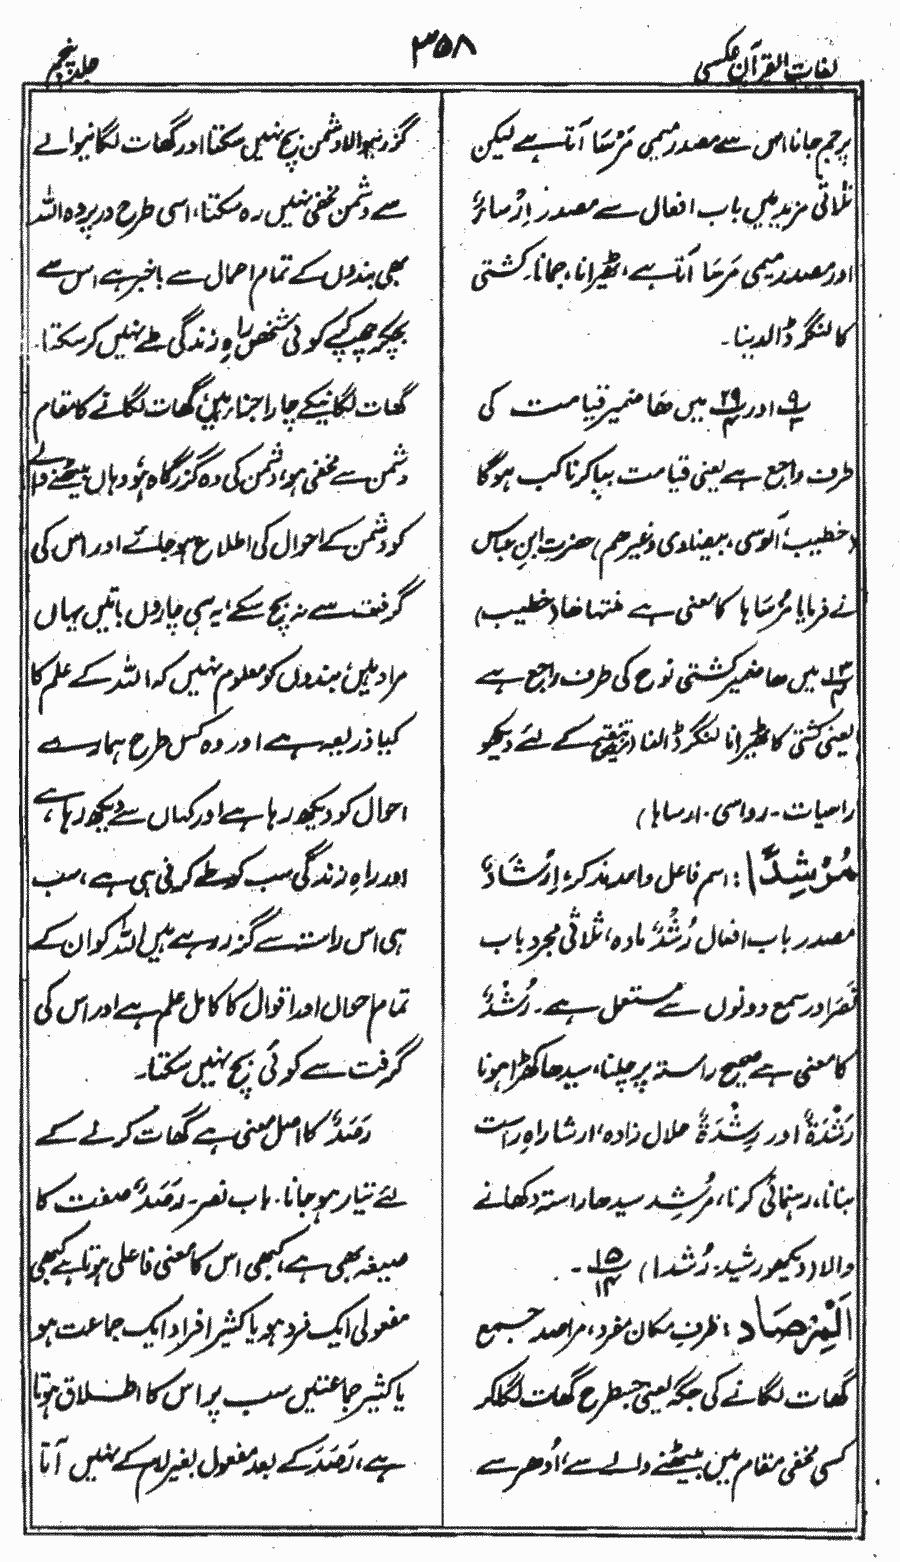 لغات القرآن عکسی
۳۵۸
جلد پنجم
پر جم جانا اس سے مصدر میمی مَرْسَا آتا ہے لیکن
ثلاثی مزید میں باب افعال سے مصدر اِرْسَاءٌ
اور مصدر میمی مَرسَا آتا ہے، ٹھیرانا، جمانا۔ کشتی
کا لنگر ڈالدینا۔
۹ اور ۲۹ میں ھا ضمیر قیامت کی
طرف راجع ہے یعنی قیامت بپا کرنا کب ہوگا
(خطیب، آلوسی، بیضاوی وغیرھم) حضرت ابنِ عباس
نے فرمایا مُرْسَاہا کا معنی ہے منتہاھا (خطیب)
۱۲ میں ھا ضمیر کشتی نوح کی طرف راجع ہے
یعنی کشتی کا ٹھیرانا لنگر ڈالنا (تنقیح کے لئے دیکھو
راسیات۔ رواسی۔ ارساہا)
مُرْشِدًا: اسم فاعل واحد مذکر، اِرْشَادٌ
مصدر باب افعال رُشْدٌ مادہ، ثلاثی مجرد باب
نَصَرَ اور سمع دونوں سے مستعمل ہے۔ رُشْدٌ
کا معنی ہے صحیح راستہ پر چلنا، سیدھا کھڑا ہونا
رَشْدَۃٌ اور رِشْدَۃٌ حلال زادہ، ارشاد راہِ راست
بتانا، رہنمائی کرنا، مُرْشِد سیدھا راستہ دکھانے
والا (دیکھو رشید، رُشدا) ۱۵/۱۴۔
اَلْمِرْصَاد: ظرفِ مکان مفرد، مراصد جمع
گھات لگانے کی جگہ یعنی جسطرح گھات لگا کر
کسی مخفی مقام میں بیٹھنے والے سے، اُدھر سے
گزرنیوالا دشمن بچ نہیں سکتا اور گھات لگانیوالے
سے دشمن مخفی نہیں رہ سکتا، اسی طرح در پردہ اللہ
بھی بندوں کے تمام احوال سے باخبر ہے، اس سے
بچکر چھپکے کوئی شخص راہِ زندگی طے نہیں کر سکتا۔
گھات لگانیکے چار اجزاء ہیں، گھات لگانے کا مقام
دشمن سے مخفی ہو، دشمن کی وہ گزرگاہ ہو، وہاں بیٹھنے والے
کو دشمن کے احوال کی اطلاع ہو جائے اور اس کی
گرفت سے نہ بچ سکے، یہ ہی چاروں باتیں یہاں
مراد ہیں، بندوں کو معلوم نہیں کہ اللہ کے علم کا
کیا ذریعہ ہے اور وہ کس طرح ہمارے
احوال کو دیکھ رہا ہے اور کہاں سے دیکھ رہا ہے،
اور راہِ زندگی سب کو طے کرنی ہی ہے، سب
ہی اس راستہ سے گزر رہے ہیں اللہ کو ان کے
تمام احوال اور اقوال کا کامل علم ہے اور اس کی
گرفت سے کوئی بچ نہیں سکتا۔
رَصَدٌ کا اصل معنی ہے گھات کرنے کے
لئے تیار ہو جانا۔ باب نصر۔ رَصَدٌ صفت کا
صیغہ بھی ہے، کبھی اس کا معنی فاعلی ہوتا ہے کبھی
مفعولی ایک فرد ہو یا کثیر افراد ایک جماعت ہو
یا کثیر جماعتیں سب پر اس کا اطلاق ہوتا
ہے، رَصَدَ کے بعد مفعول بغیر لام کے نہیں آتا